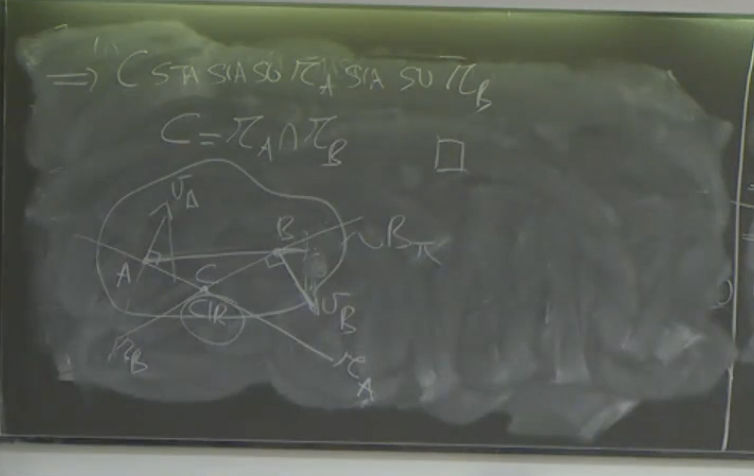 ⇒ C STA SIA SU r_A SIA SU r_B
C = r_A ∩ r_B □
v_A
B
B_π
A
C
CIR
v_B
r_B
r_A